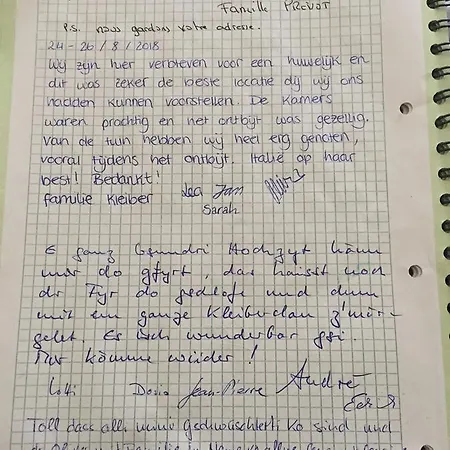 Famille PREVOT
P.S. nous gardons votre adresse.
24-26/8/2018
Wij zijn hier verbleven voor een huwelijk en
dit was zeker de beste locatie dij wij ons
hadden kunnen voorstellen. De kamers
waren prachtig en het ontbijt was gezellig.
Van de tuin hebben wij heel erg genoten,
vooral tijdens het ontbijt. Italië op haar
best! Bedankt!
familie Kleiber Lea Jan
Sarah
E ganz Hochzyt hän
mir do gfyrt, das haisst noch
dr Fyr do gschlofe und denn
mit em ganze Kleiberclan z'mör-
gelet. Es isch wunderbar gsi.
Mir kömme wieder!
Lotti Doris Jean-Pierre André
Toll dass alli mini gschwüschterti ko sind und